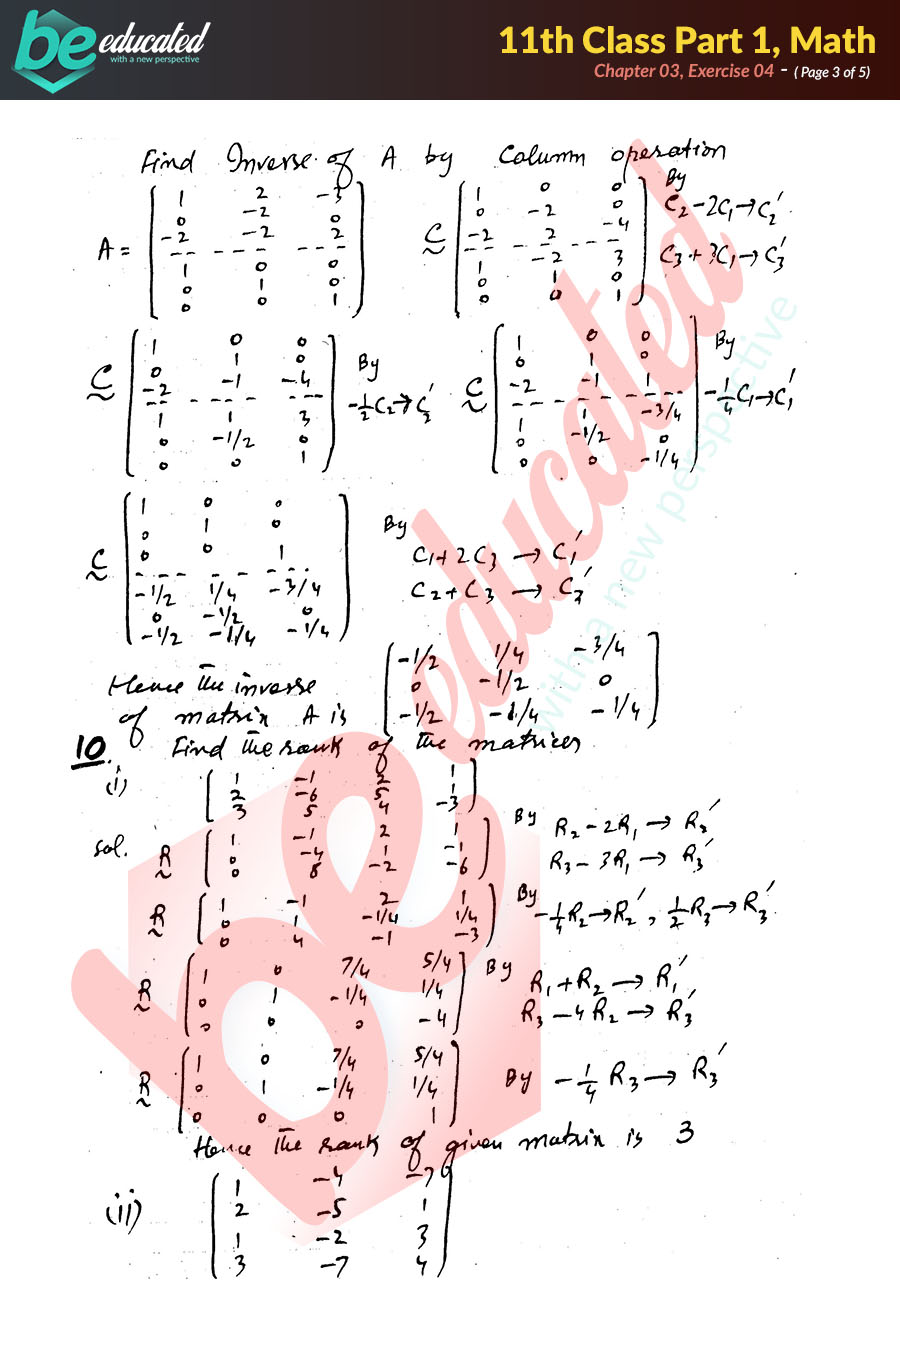 be educated
with a new perspective
11th Class Part 1, Math
Chapter 03, Exercise 04 - ( Page 3 of 5)
Find Inverse of A by Column operation
A = [ 1 2 -3
0 -2 0
-2 -2 2
- - - - - - - -
1 0 0
0 1 0
0 0 1 ]
C ~ [ 1 0 0
0 -2 0
-2 2 -4
- - - - - - - -
1 -2 3
0 1 0
0 0 1 ]
By
C₂ - 2C₁ → C₂′
C₃ + 3C₁ → C₃′
C ~ [ 1 0 0
0 1 0
-2 -1 -4
- - - - - - - -
1 1 3
0 -1/2 0
0 0 1 ]
By
-½C₂ → C₂′
C ~ [ 1 0 0
0 1 0
-2 -1 1
- - - - - - - -
1 1 -3/4
0 -1/2 0
0 0 -1/4 ]
By
-¼C₁ → C₁′
C ~ [ 1 0 0
0 1 0
0 0 1
- - - - - - - -
-1/2 1/4 -3/4
0 -1/2 0
-1/2 -1/4 -1/4 ]
By
C₁ + 2C₃ → C₁′
C₂ + C₃ → C₂′
Hence the inverse
of matrix A is
[ -1/2 1/4 -3/4
0 -1/2 0
-1/2 -1/4 -1/4 ]
10. Find the rank of the matrices
(i) [ 1 -1 2 1
2 -6 5 1
3 5 4 -3 ]
Sol. R ~ [ 1 -1 2 1
0 -4 1 -1
0 8 -2 -6 ]
By R₂ - 2R₁ → R₂′
R₃ - 3R₁ → R₃′
R ~ [ 1 -1 2 1
0 1 -1/4 1/4
0 4 -1 -3 ]
By
-¼R₂ → R₂′, ½R₃ → R₃′
R ~ [ 1 0 7/4 5/4
0 1 -1/4 1/4
0 0 0 -4 ]
By
R₁ + R₂ → R₁′
R₃ - 4R₂ → R₃′
R ~ [ 1 0 7/4 5/4
0 1 -1/4 1/4
0 0 0 1 ]
By -¼ R₃ → R₃′
Hence the rank of given matrix is 3
(ii) [ 1 -4 -7
2 -5 1
1 -2 3
3 -7 4 ]
be educated
with a new perspective